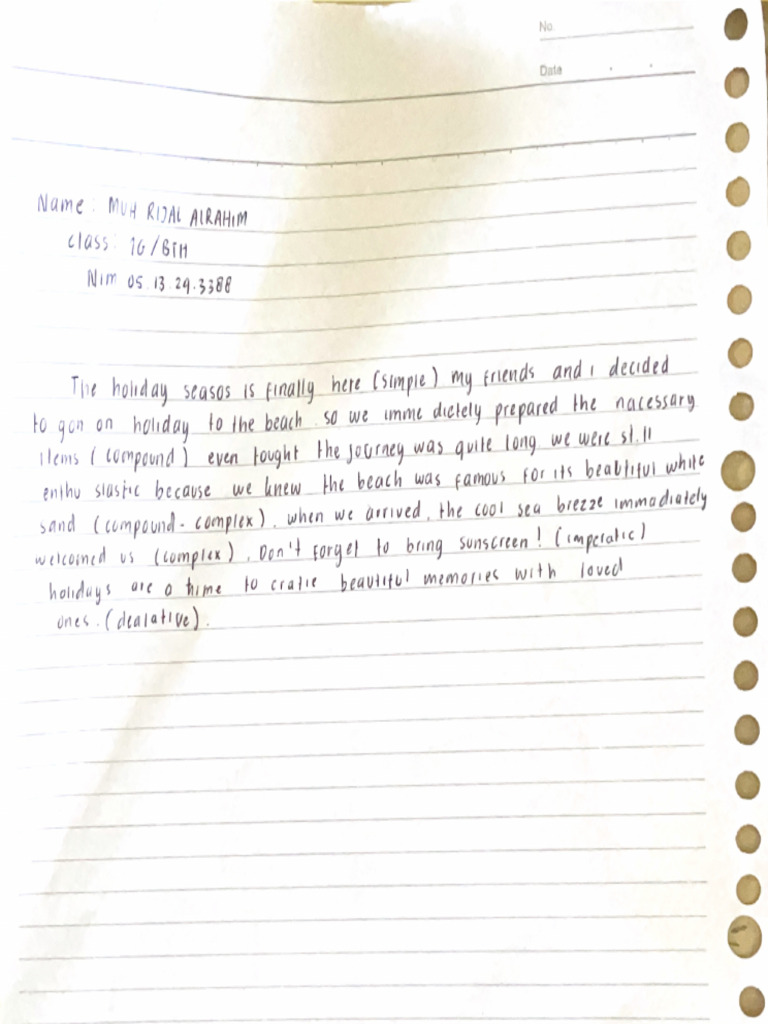 No.
Date
Name : MUH RIJAL ALRAHIM
class : 1G/BTH
Nim 05.13.24.3388
The holiday seasos is finally here (simple) my friends and i decided
to gon on holiday to the beach so we imme dietely prepared the nacessary
items (compound) even tought the journey was quite long we were still
enthu siastic because we knew the beach was famous for its beautiful white
sand (compound - complex), when we arrived, the cool sea brezze immadiately
welcomed us (complex), Don't forget to bring sunscreen! (imperatic)
holidays are a time to cratie beautiful memories with loved
ones. (dealative).